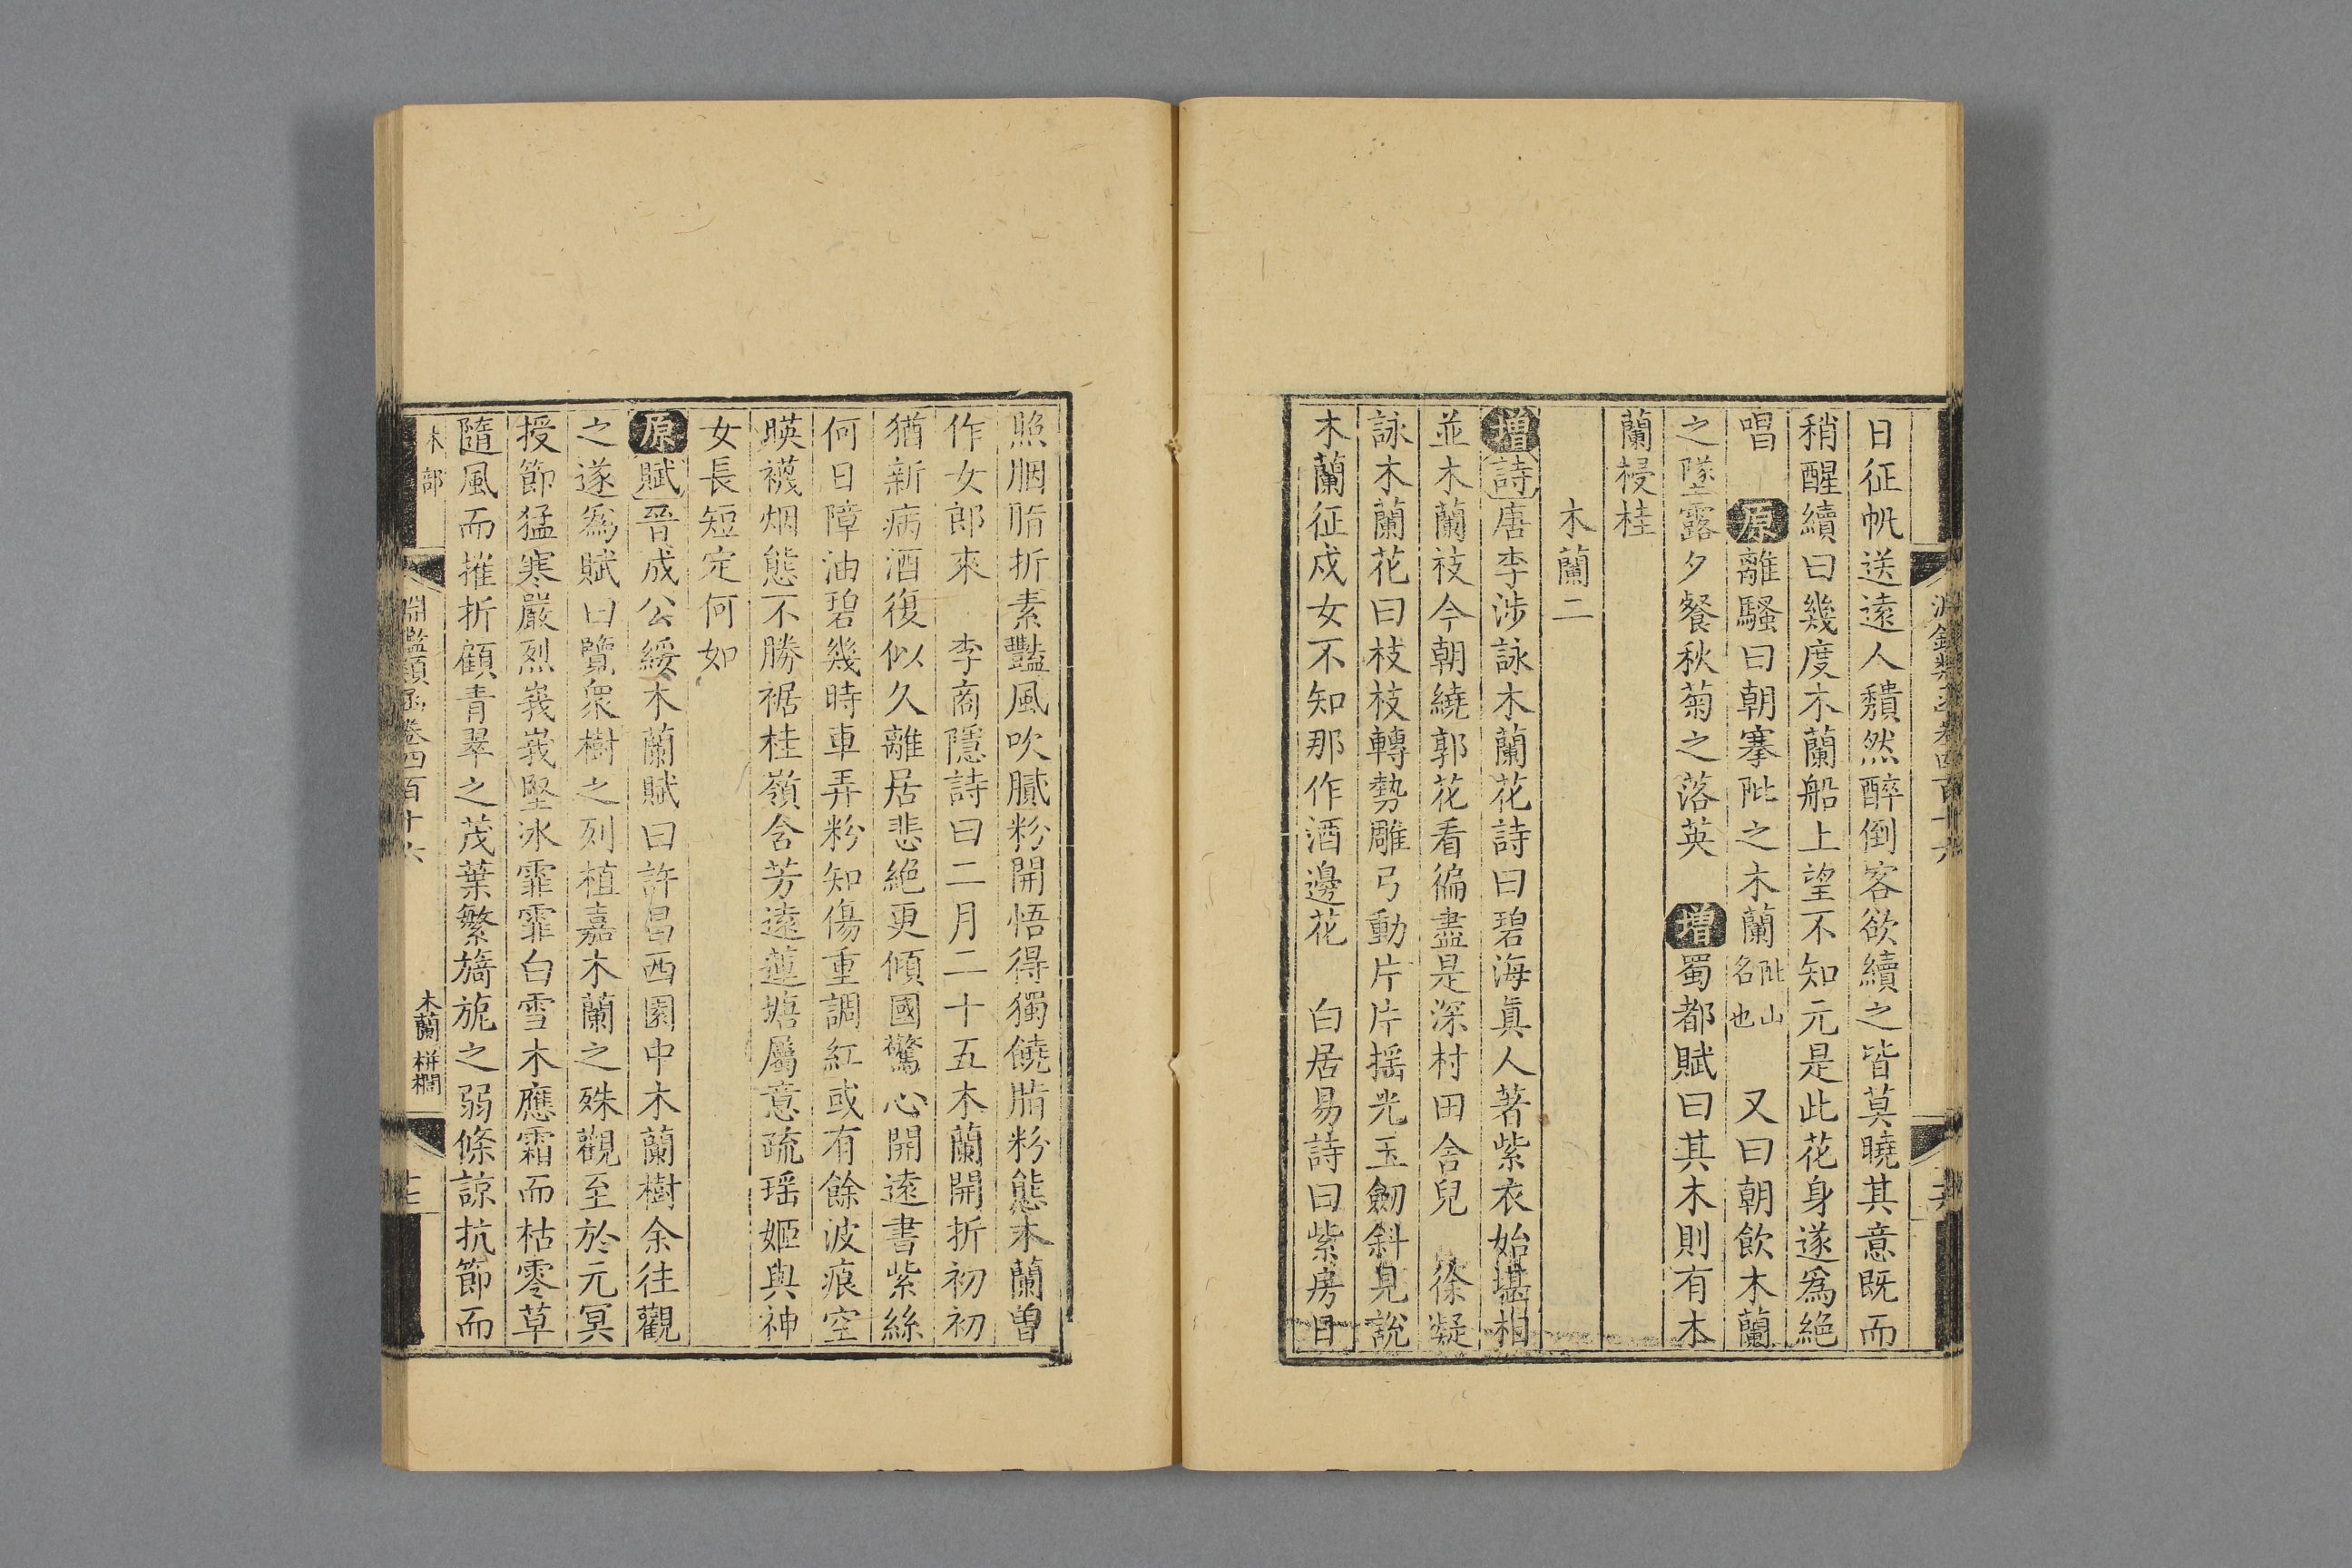 日征帆送遠人頽然醉倒客欲續之皆莫曉其意既而
稍醒續曰幾度木蘭船上望不知元是此花身遂爲絶
唱　原離騷曰朝搴阰之木蘭阰山名也　又曰朝飲木蘭
之墜露夕餐秋菊之落英　增蜀都賦曰其木則有木
蘭梫桂
木蘭二
增詩唐李涉詠木蘭花詩曰碧海眞人著紫衣始堪相
並木蘭枝今朝繞郭花看徧盡是深村田舍兒　徐凝
詠木蘭花曰枝枝轉勢雕弓動片片摇光玉劒斜見說
木蘭征戍女不知那作酒邊花　白居易詩曰紫房日
照胭脂折素豔風吹膩粉開悟得獨饒脂粉態木蘭曾
作女郎來　李商隱詩曰二月二十五木蘭開折初初
猶新病酒復似久離居悲絶更傾國驚心開遠書紫絲
何日障油碧幾時車弄粉知傷重調紅或有餘波痕空
暎襪烟態不勝裾桂嶺含芳遠蓮塘屬意疏瑶姬與神
女長短定何如
原賦晉成公綏木蘭賦曰許昌西園中木蘭樹余往觀
之遂爲賦曰覽衆樹之列植嘉木蘭之殊觀至於元冥
授節猛寒嚴烈峩峩堅冰霏霏白雪木應霜而枯零草
隨風而摧折顧青翠之茂葉繁旖旎之弱條諒抗節而
木部　淵鑑類函卷四百十六　木蘭　栟櫚